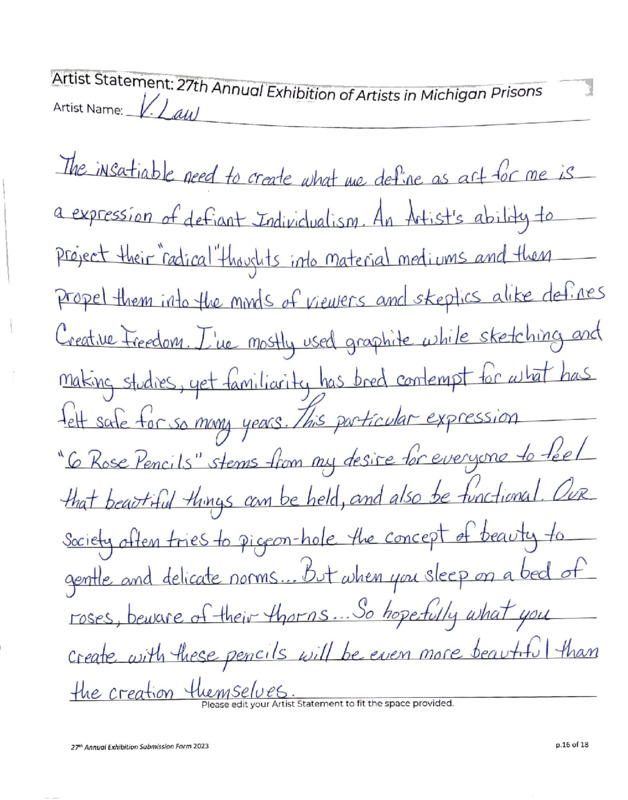 Artist Statement: 27th Annual Exhibition of Artists in Michigan Prisons
Artist Name: V. Law
The insatiable need to create what we define as art for me is
a expression of defiant Individualism. An Artist's ability to
project their "radical" thoughts into material mediums and then
propel them into the minds of viewers and skeptics alike defines
Creative Freedom. I've mostly used graphite while sketching and
making studies, yet familiarity has bred contempt for what has
felt safe for so many years. This particular expression
"6 Rose Pencils" stems from my desire for everyone to feel
that beautiful things can be held, and also be functional. Our
Society often tries to pigeon-hole the concept of beauty to
gentle and delicate norms... But when you sleep on a bed of
roses, beware of their thorns... So hopefully what you
create with these pencils will be even more beautiful than
the creation themselves.
Please edit your Artist Statement to fit the space provided.
27th Annual Exhibition Submission Form 2023
p.16 of 18